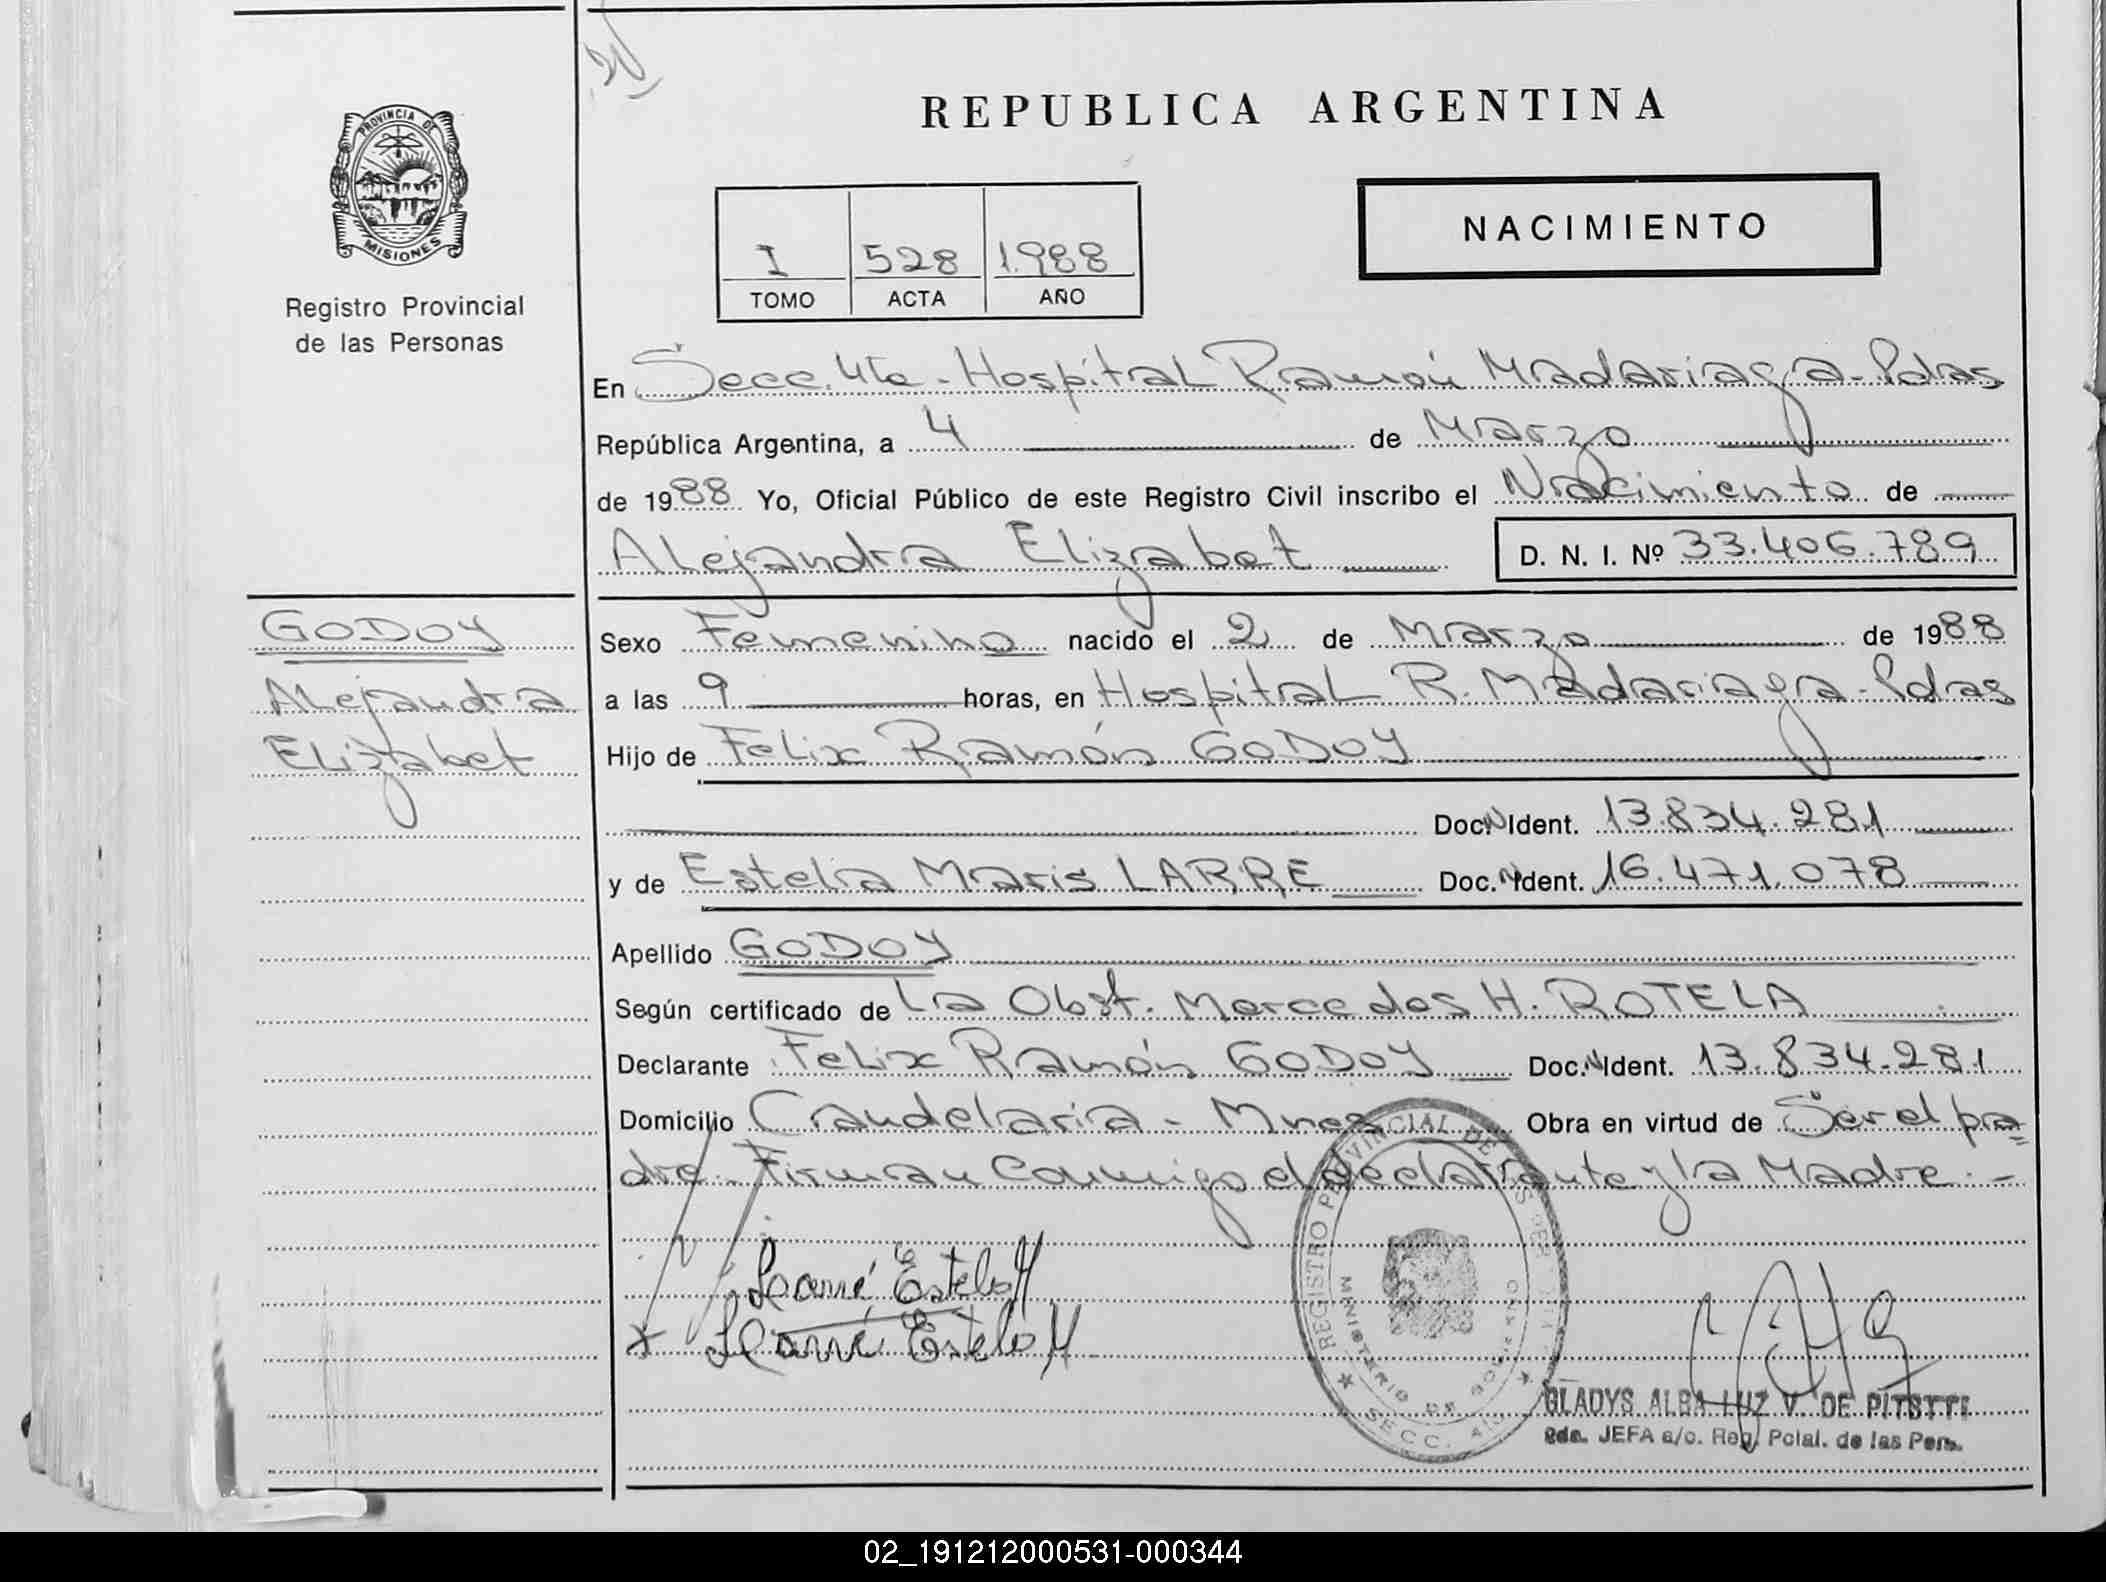 PROVINCIA DE
MISIONES
Registro Provincial
de las Personas
REPUBLICA ARGENTINA
I 528 1.988
TOMO ACTA AÑO
NACIMIENTO
En Secc. 4ta - Hospital Ramón Madariaga - Pdas
República Argentina, a 4 de Marzo
de 1988 Yo, Oficial Público de este Registro Civil inscribo el Nacimiento de
Alejandra Elizabet D. N. I. Nº 33.406.789
GODOY
Alejandra
Elizabet
Sexo Femenino nacido el 2 de Marzo de 1988
a las 9 horas, en Hospital R. Madariaga - Pdas
Hijo de Felix Ramón GODOY
Doc. N Ident. 13.834.281
y de Estela Maris LARRE Doc. N Ident. 16.471.078
Apellido GODOY
Según certificado de La Obst. Mercedes H. ROTELA
Declarante Felix Ramón GODOY Doc. N Ident. 13.834.281
Domicilio Candelaria - Mnes Obra en virtud de Ser el pa=
dre. Firman Conmigo el declarante y la Madre. -
Larré Estela M
x Larré Estela M
REGISTRO PROVINCIAL DE LAS PER
MINISTERIO DE GOBIERNO
SECC. 4
GLADYS ALBA LUZ V. DE
2da. JEFA a/c. Reg. Pcial. de las Pers.
02_191212000531-000344